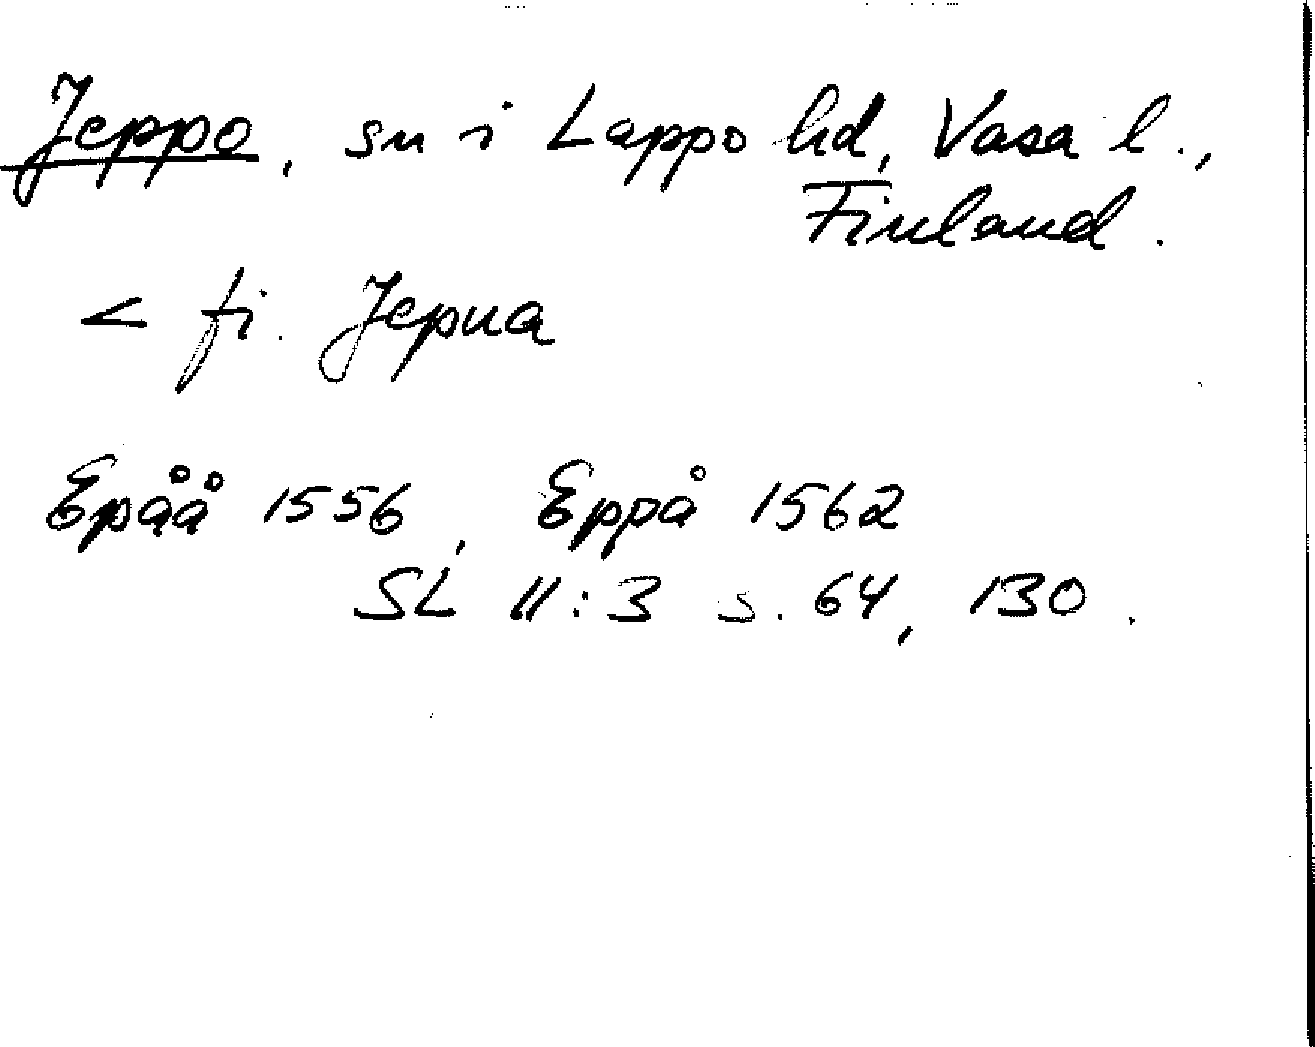 Jeppo, sn i Lappo hd, Vasa l.,
Finland.
< fi. Jepua
Epåå 1556, Eppå 1562
SL II:3 s. 64, 130.